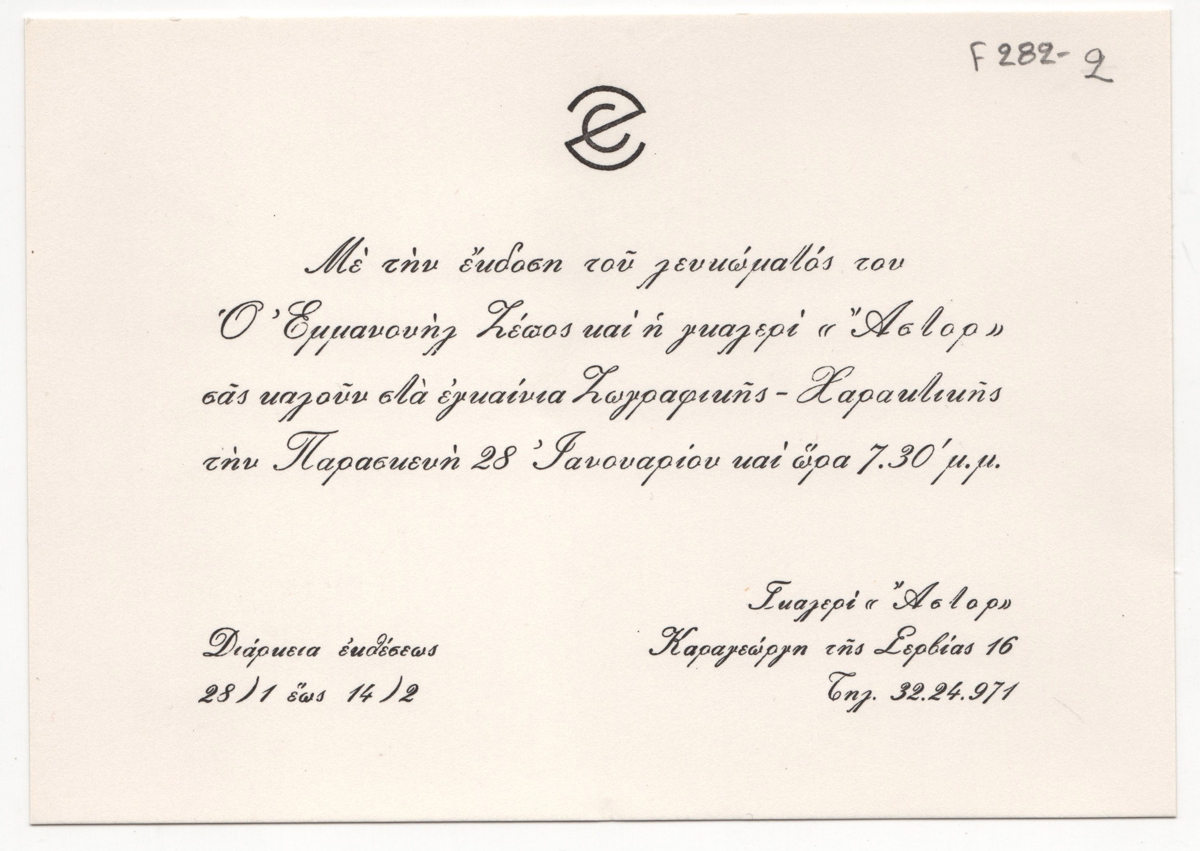 F 282-2
Μὲ τὴν ἔκδοση τοῦ λευκώματός του
Ὁ Ἐμμανουὴλ Ζέπος καὶ ἡ γκαλερὶ « Ἄστορ»
σᾶς καλοῦν στὰ ἐγκαίνια Ζωγραφικῆς - Χαρακτικῆς
τὴν Παρασκευὴ 28 Ἰανουαρίου καὶ ὥρα 7.30΄ μ.μ.
Γκαλερὶ « Ἄστορ»
Διάρκεια ἐκθέσεως
Καραγεώργη τῆς Σερβίας 16
28/1 ἕως 14/2
Τηλ. 32.24.971